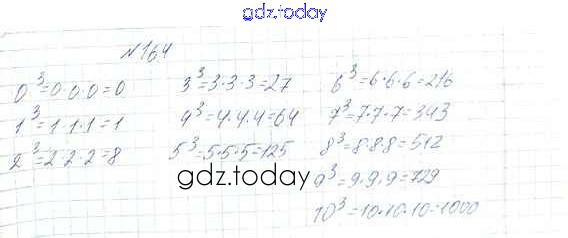 gdz.today
№164
0³=0·0·0=0
1³=1·1·1=1
2³=2·2·2=8
3³=3·3·3=27
4³=4·4·4=64
5³=5·5·5=125
6³=6·6·6=216
7³=7·7·7=343
8³=8·8·8=512
9³=9·9·9=729
10³=10·10·10=1000
gdz.today